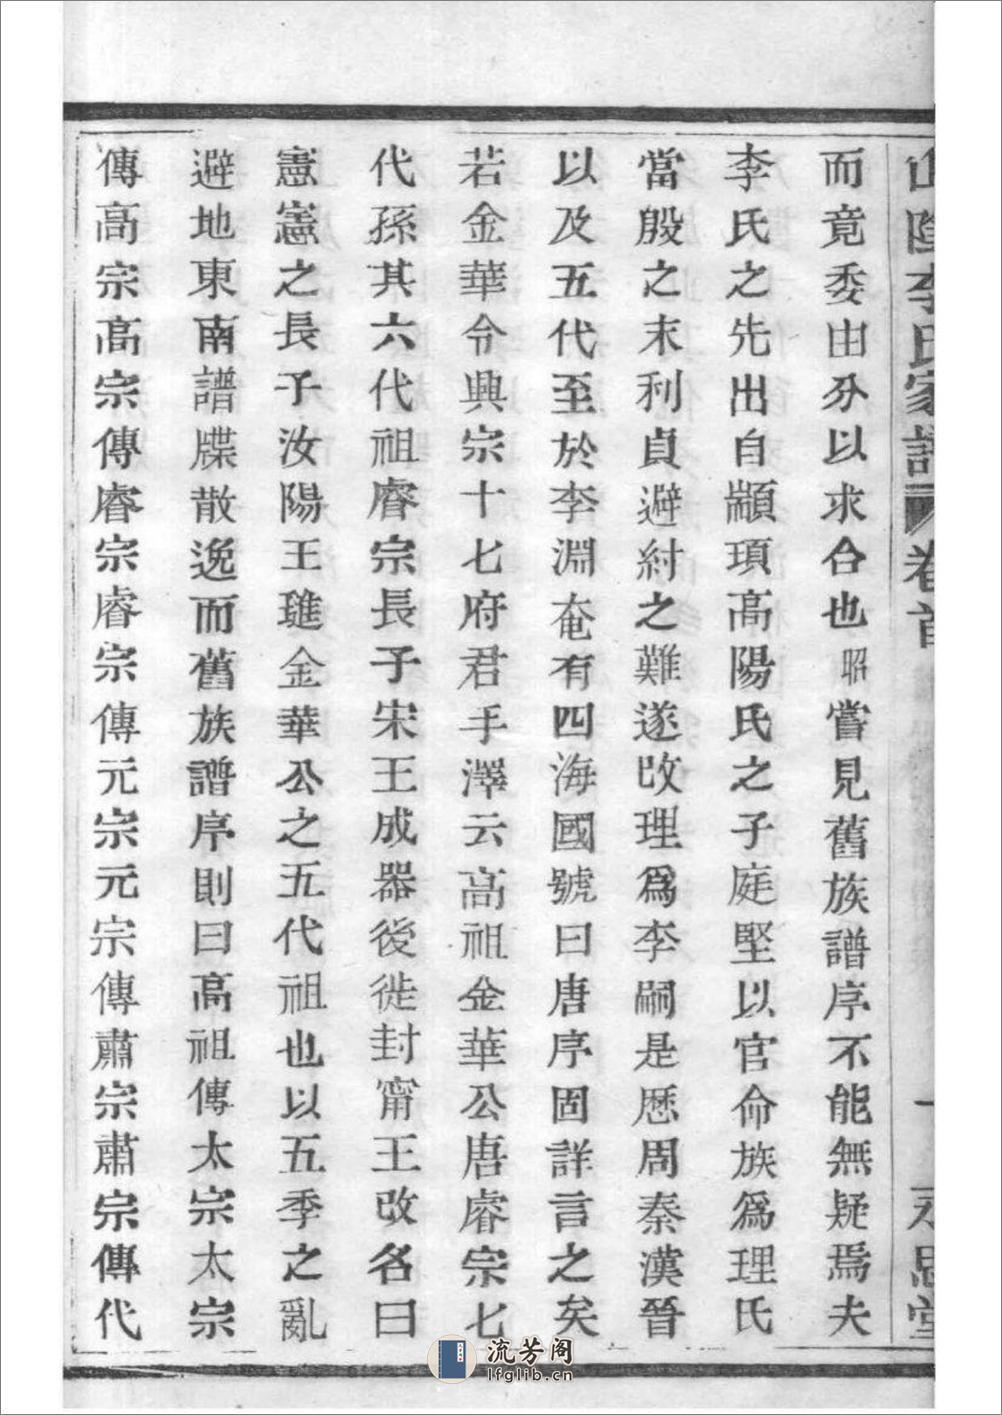 山陰李氏家譜 卷首 一 永思堂
而竟委由分以求合也昭嘗見舊族譜序不能無疑焉夫
李氏之先出自顓頊高陽氏之子庭堅以官命族爲理氏
當殷之末利貞避紂之難遂改理爲李嗣是歷周秦漢晉
以及五代至於李淵奄有四海國號曰唐序固詳言之矣
若金華令興宗十七府君手澤云高祖金華公唐睿宗七
代孫其六代祖睿宗長子宋王成器後徙封甯王改名曰
憲憲之長子汝陽王璡金華公之五代祖也以五季之亂
避地東南譜牒散逸而舊族譜序則曰高祖傳太宗太宗
傳高宗高宗傳睿宗睿宗傳元宗元宗傳肅宗肅宗傳代
流芳阁
lfglib.cn